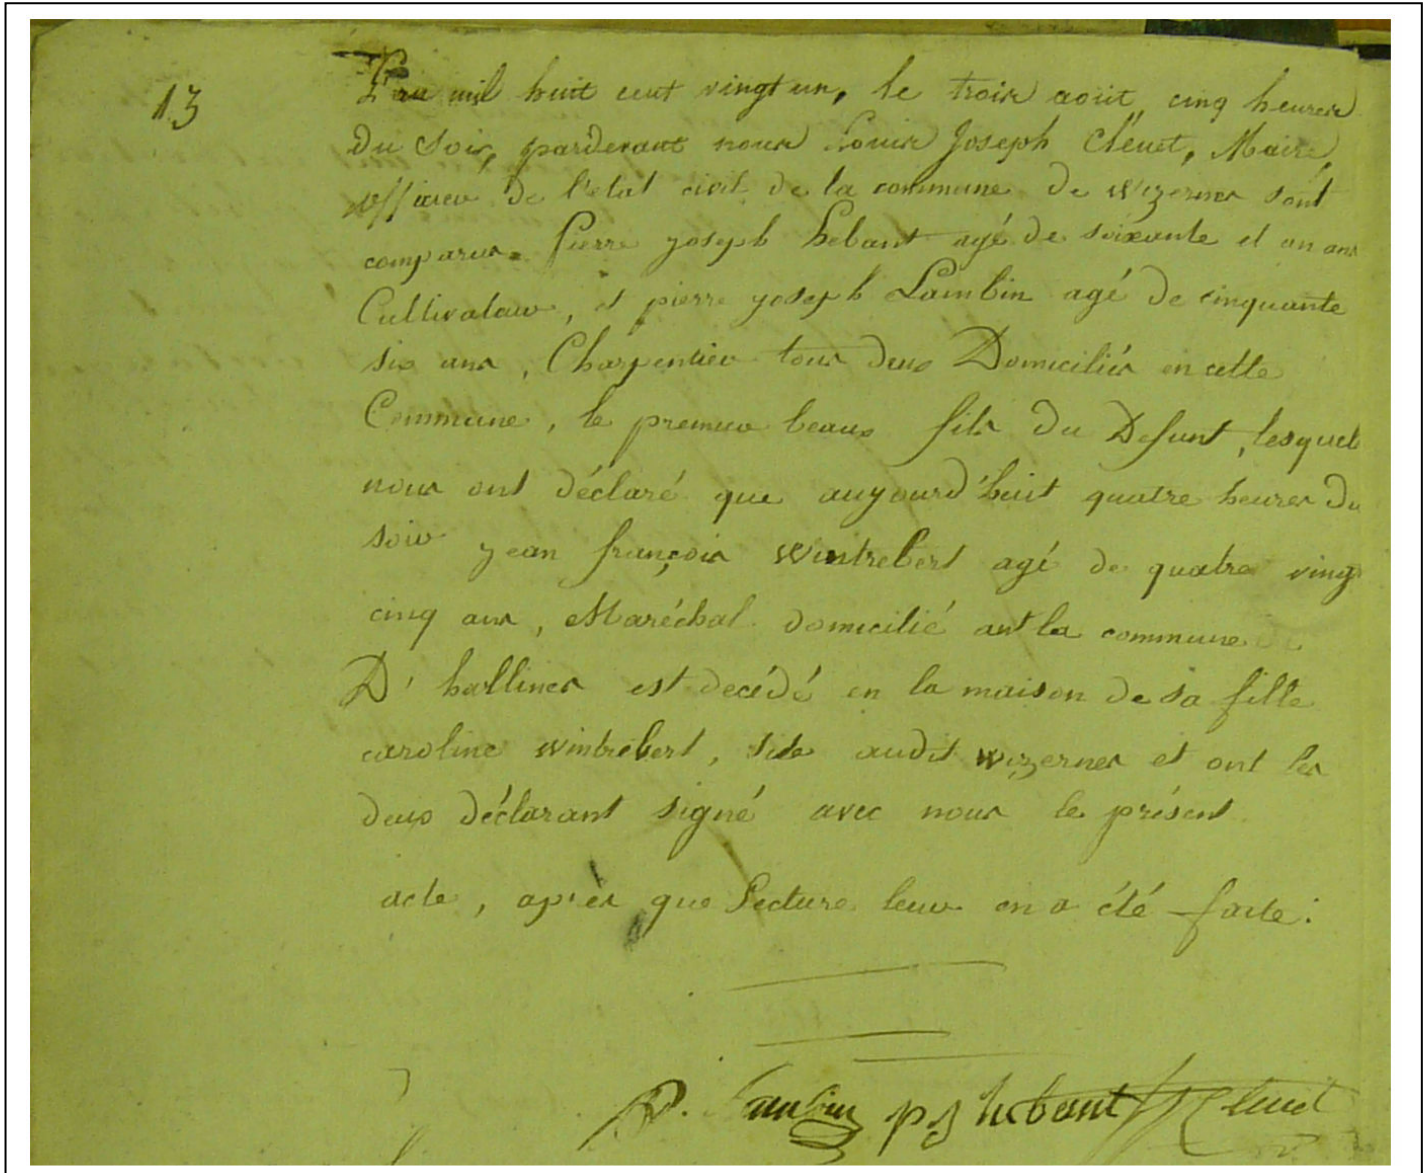 13
L'an mil huit cent vingt un, le trois août, cinq heures
du soir, pardevant nous Louis Joseph Cleuet, Maire,
officier de l'etat civil de la commune de wizernes sont
comparus. Pierre yoseph hebant agé de soixante et un ans
Cultivateur, et pierre yoseph Lambin agé de cinquante
six ans, Charpentier tous deux Domiciliés en cette
Commune, le premier beaux fils du Defunt, lesquels
nous ont déclaré que auyourd'huit quatre heures du
soir yean françois Wintrebert agé de quatre ving
cinq ans, Maréchal domicilié la commune
D'hallines est decédé en la maison de sa fille
caroline wintrebert, sise audit wizernes et ont les
deux déclarant signé avec nous le présent
acte, après que Lecture leur en a été faite.
P. Lambin p j hebant Cleuet